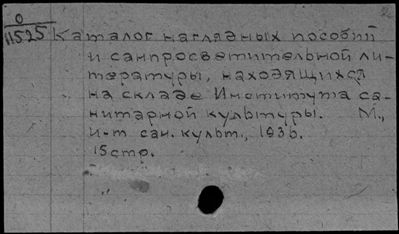 О
11525 Каталог наглядных пособий
и санпросветительной ли-
тературы, находящихся
на складе Института са-
нитарной культуры. М.,
и-т сан. культ., 1936.
15стр.